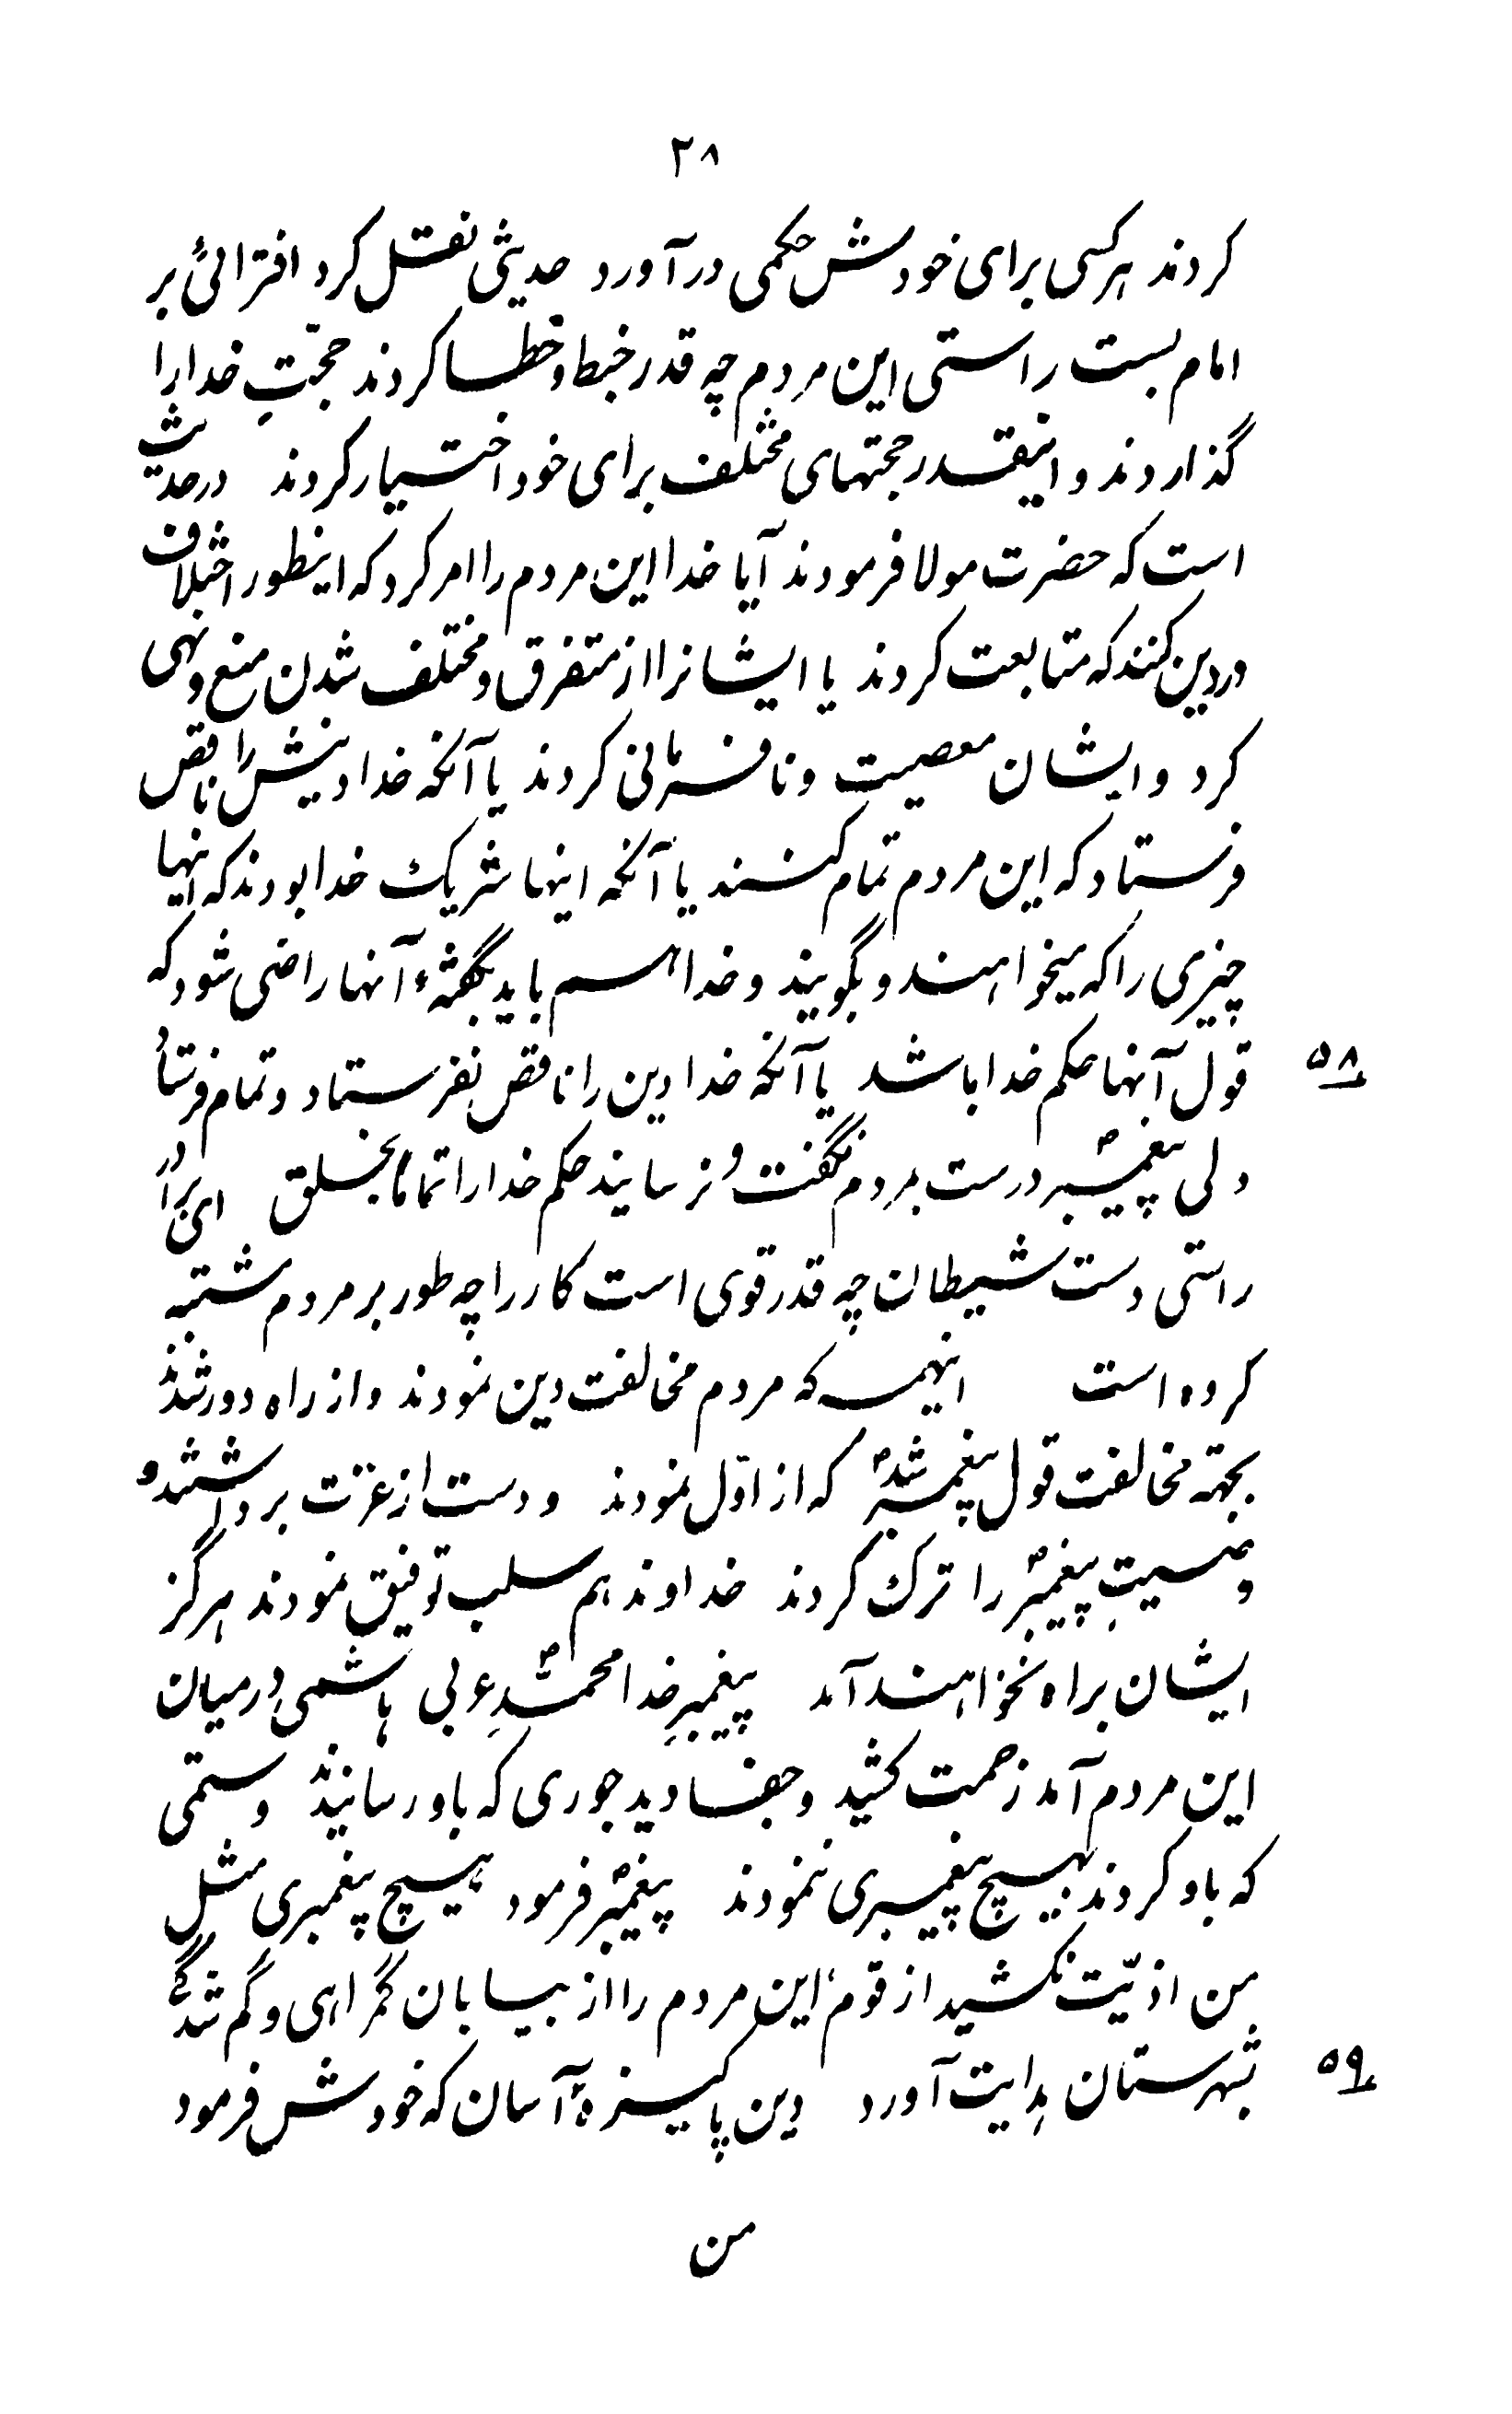 ۲۸
کردند هر کسی برای خودش حکمی در آورد حدیثی نقل کرد افترائی بر
امام بست راستی این مردم چه قدر خبط و خطا کردند حجّتِ خدا را
گذاردند و اینقدر حجتهای مختلف برای خود اختیار کردند در حدیث
است که حضرت مولا فرمودند آیا خدا این مردم را امر کرد که اینطور اختلاف
در دین کنند که متابعت کردند یا ایشانرا از متفرق و مختلف شدن منع و نهی
کرد و ایشان معصیت و نافرمانی کردند یا آنکه خدا دینش را ناقص
فرستاد که این مردم تمام کنند یا آنکه اینها شریک خدا بودند که اینها
چیزی را که میخواهند و بگویند و خدا هم باید بگفتهٔ آنها راضی شود که
قول آنها حکم خدا باشد یا آنکه خدا دین را ناقص نفرستاد و تمام فرستاد
۵۸
ولی پیغمبرؐ درست بمردم نگفت و نرسانید حکم خدا را تماماً بخلق ای برادر
راستی دست شیطان چه قدر قوی است کار را چه طور بر مردم مشتبه
کرده است اینهمه که مردم مخالفت دین نمودند و از راه دور شدند
بجهة مخالفت قول پیغمبرؐ شد که از اوّل نمودند و دست از عترت برداشتند و
وصیتِ پیغمبرؐ را ترک کردند خداوند هم سلب توفیق نمودند هرگز
ایشان براه نخواهند آمد پیغمبرِ خدا محمّدِؐ عربی هاشمی در میان
این مردم آمد زحمت کشید و جفا دید جوری که باو رسانیدند و ستمی
که باو کردند بهیچ پیغمبری ننمودند پیغمبرؐ فرمود هیچ پیغمبری مثل
من اذیّت نکشید از قوم، این مردم را از بیابان گمراهی و گم شدگی
بشهرستان هدایت آورد دین پاکیزهٔ آسان که خودش فرمود
۵۹
من